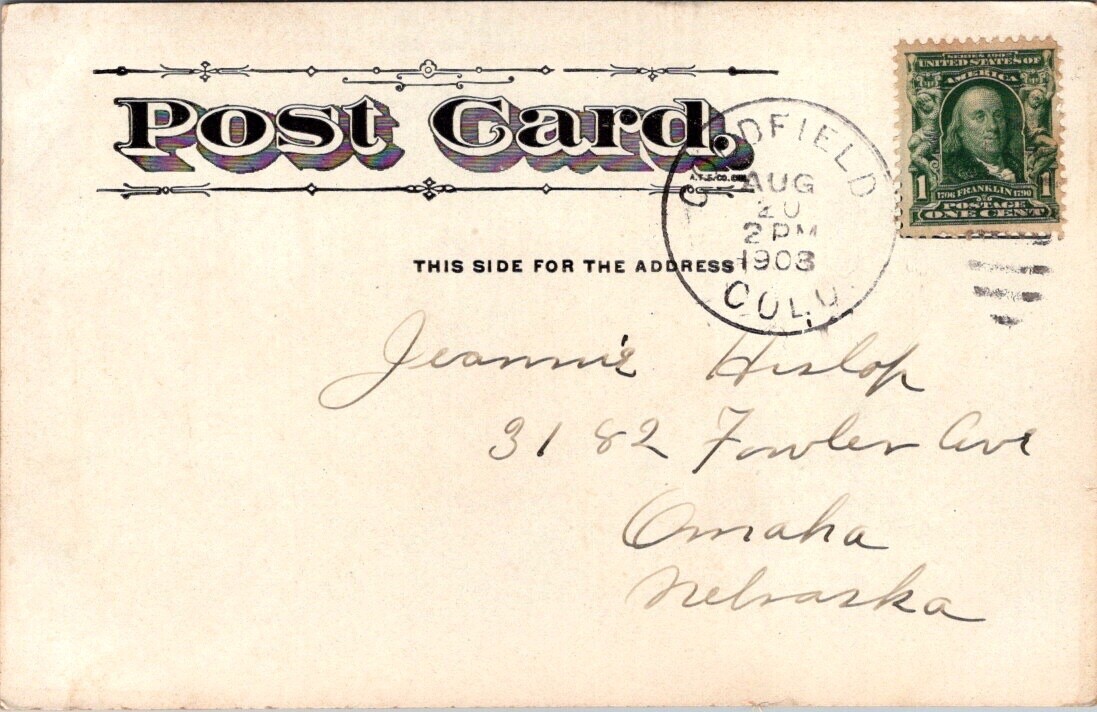 Post Card.
A.T.F. CO.
THIS SIDE FOR THE ADDRESS
GOLDFIELD
AUG
20
2 PM
1903
COLO.
SERIES 1902
UNITED STATES OF
AMERICA
1 1
1706 FRANKLIN 1790
POSTAGE
ONE CENT
Jeannie Hislop
3182 Fowler Ave
Omaha
Nebraska